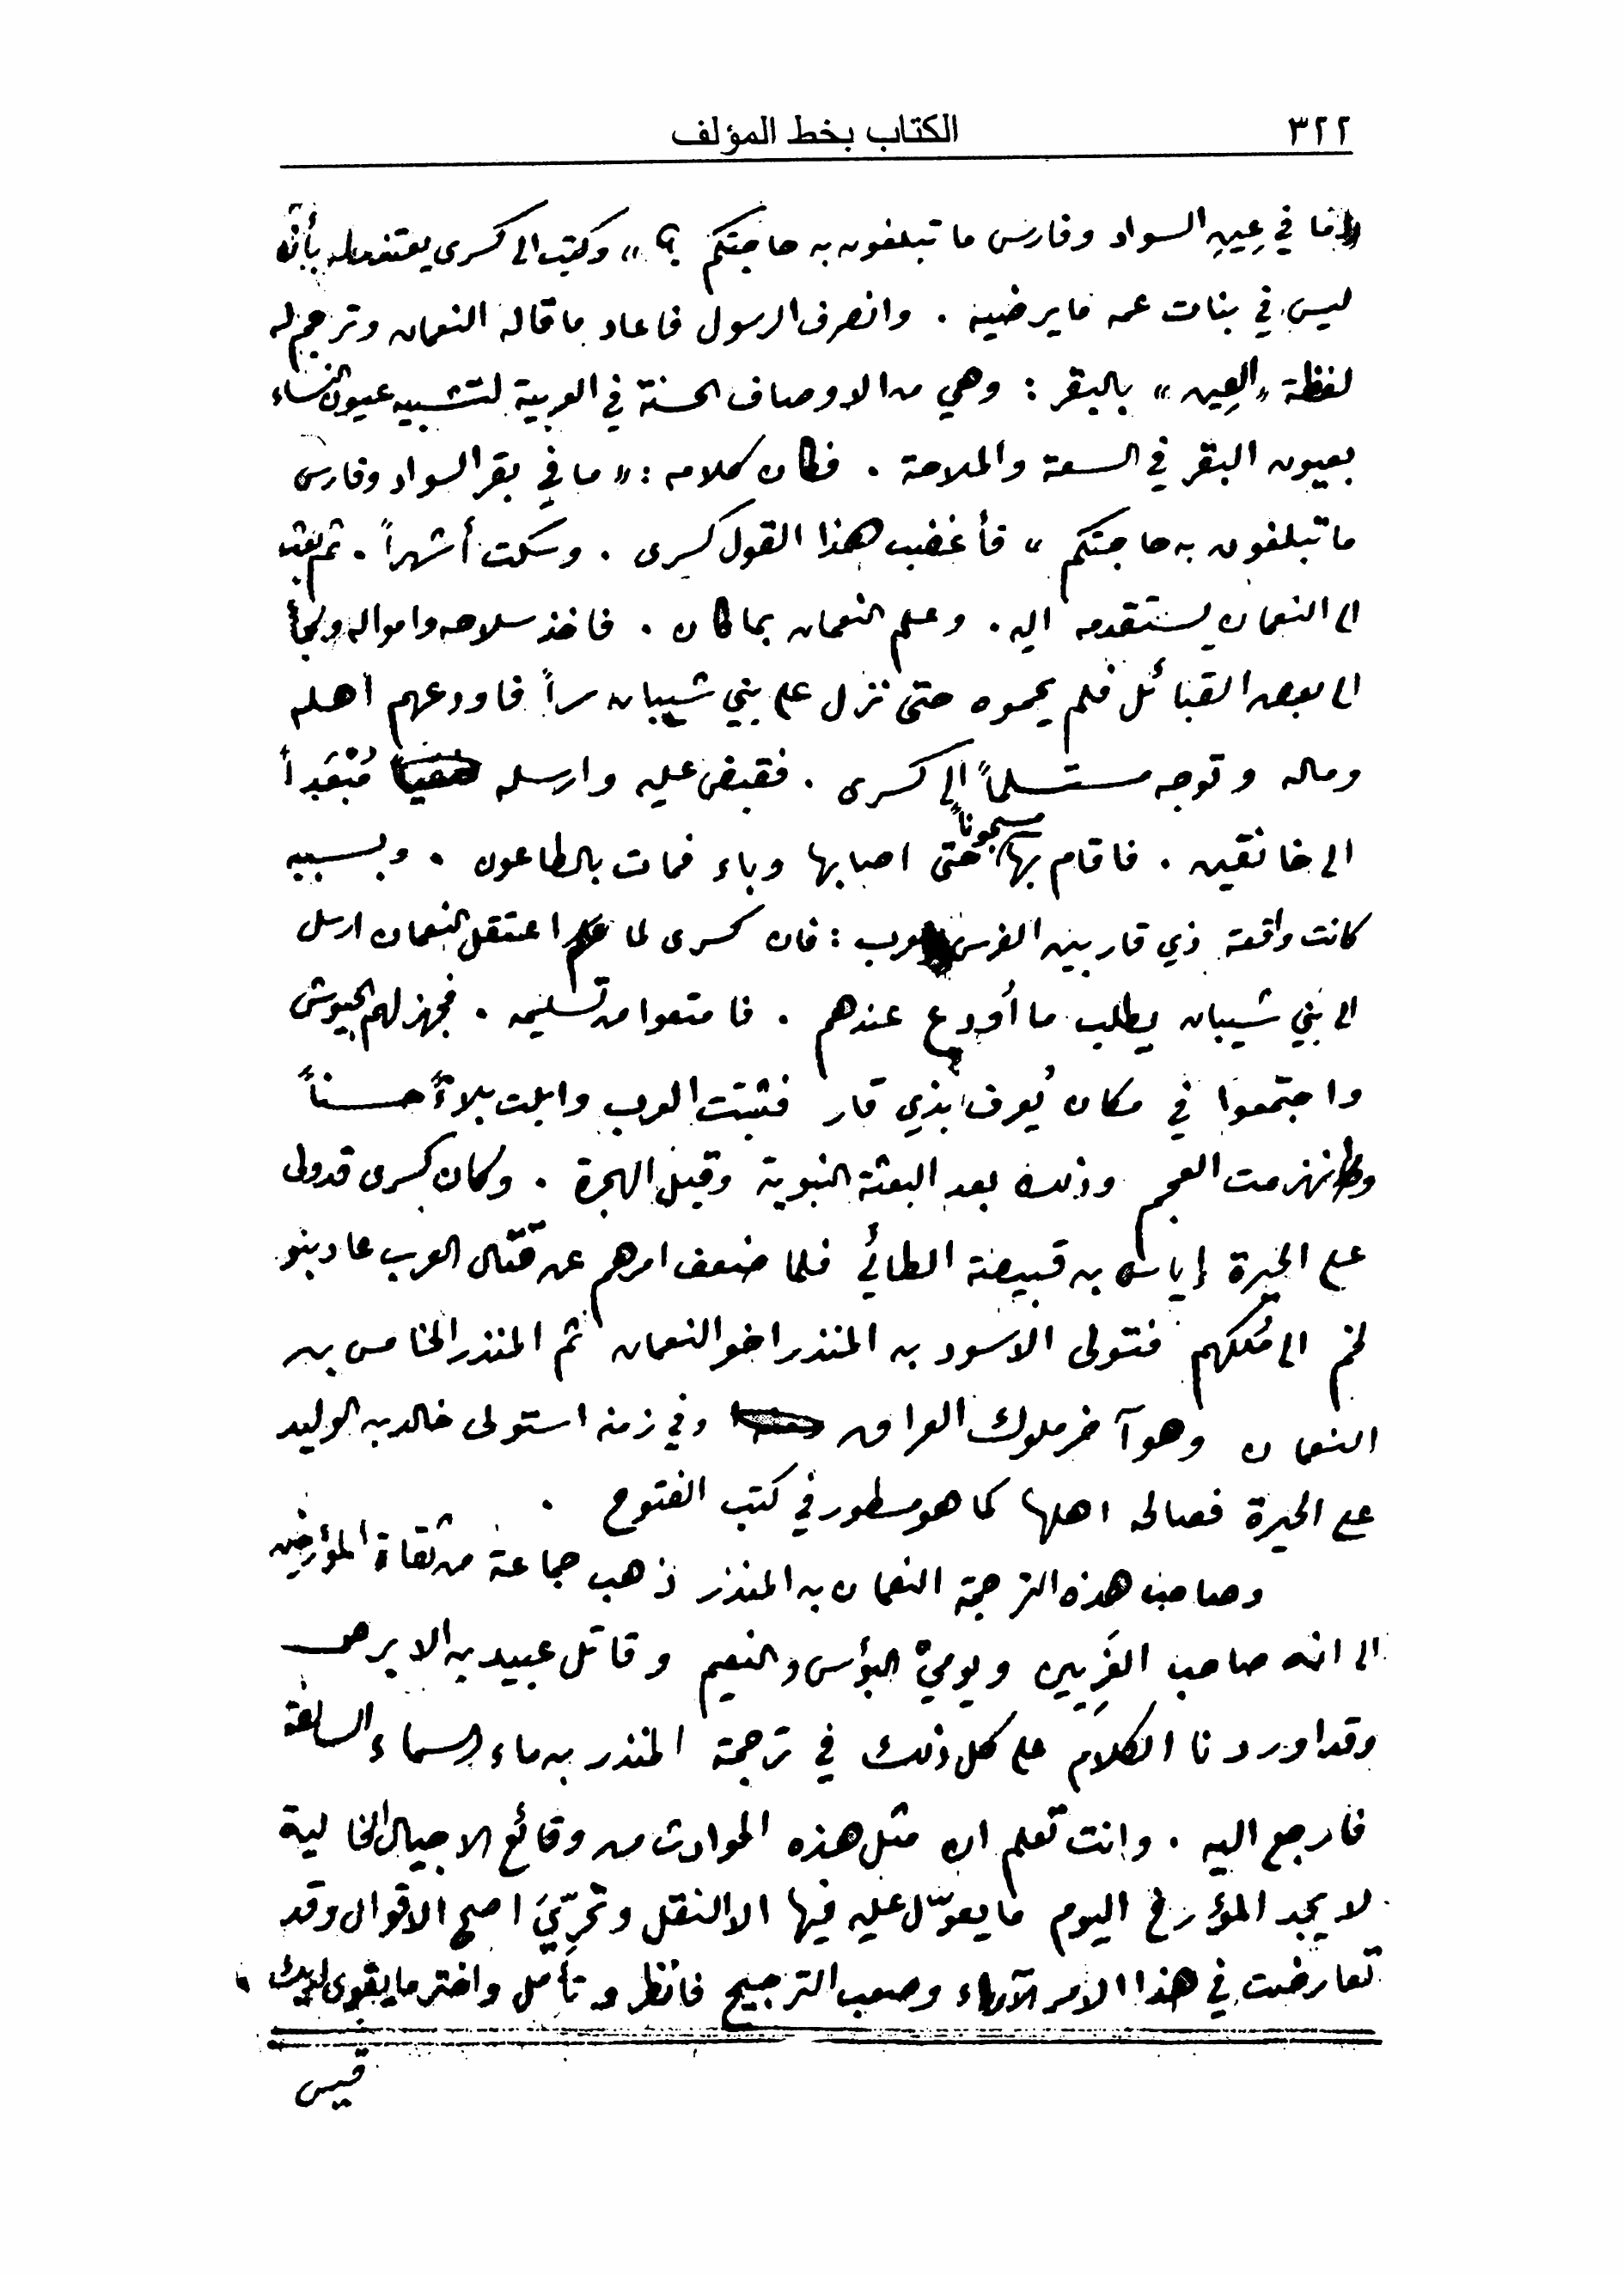 ٣٢٢ الكتاب بخط المؤلف
«أما في عِينِ السواد وفارس ما تبلغون به حاجتكم ؟» وكتب الى كسرى يعتذر له بأنه
ليس في بنات عمه ما يرضيه . وانصرف الرسول فاعاد ما قاله النعمان وترجم له
لفظة «العِين» بالبقر : وهي من الاوصاف الحسنة في العربية لتشبيه عيون النساء
بعيون البقر في السعة والملاحة . فكان كلامه : «ما في بقر السواد وفارس
ما تبلغون به حاجتكم» فأغضب هذا القول كسرى . وسكت أشهراً . ثم بعث
الى النعمان يستقدمه اليه . وعلم النعمان بما كان . فاخذ سلاحه وامواله ولجأ
الى بعض القبائل فلم يحموه حتى نزل على بني شيبان سراً فاودعهم اهله
وماله وتوجه مستسلماً الى كسرى . فقبض عليه وارسله مُبْعَداً
الى خانقين . فاقام بها مسجوناً حتى اصابها وباء فمات بالطاعون . وبسببه
كانت واقعة ذي قار بين الفرس والعرب : فان كسرى لما اعتقل النعمان ارسل
الى بني شيبان يطلب ما أُودع عندهم . فامتنعوا من تسليمه . فجهز لهم الجيوش
واجتمعوا في مكان يُعرف بذي قار فثبتت العرب وابلت بلاءً حسناً
وانهزمت العجم وذلك بعد البعثة النبوية وقبل الهجرة . وكان كسرى قد ولى
على الحيرة إياس بن قبيصة الطائي فلما ضعف امرهم عن قتال العرب عاد بنو
لخم الى مُلكهم فتولى الاسود بن المنذر اخو النعمان ثم المنذر الخامس بن
النعمان وهو آخر ملوك العراق وفي زمنه استولى خالد بن الوليد
على الحيرة فصالح اهلها كما هو مسطور في كتب الفتوح .
وصاحب هذه الترجمة النعمان بن المنذر ذهب جماعة من ثقاة المؤرخين
الى انه صاحب الغَرِيين ويوميْ البؤس والنعيم وقاتل عبيد بن الابرص
وقد اوردنا الكلام على كل ذلك في ترجمة المنذر بن ماء السماء السالفة
فارجع اليه . وانت تعلم ان مثل هذه الحوادث من وقائع الاجيال الخالية
لا يجد المؤرخ اليوم ما يعوّل عليه فيها الا النقل وتحرِّيَ اصح الاقوال وقد
تعارضت في هذا الامر الآراء وصعب الترجيح فانظر وتأمل واختر ما يقوى لديك .
قيس